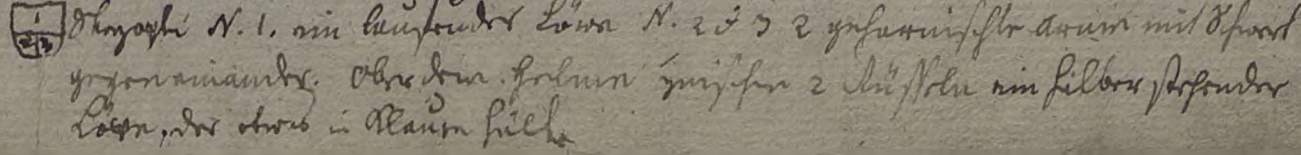 1 2 3 N. 1. ein laufender Löwe N. 2 & 3 2 geharnischte Arme mit Schwert
gegen einander. Ober dem Helme zwischen 2 Rüsseln ein halber stehender
Löwe, der etwas in Klauen hält